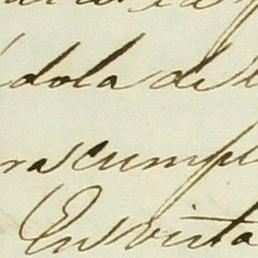 dola de
ra cumpl
En vista